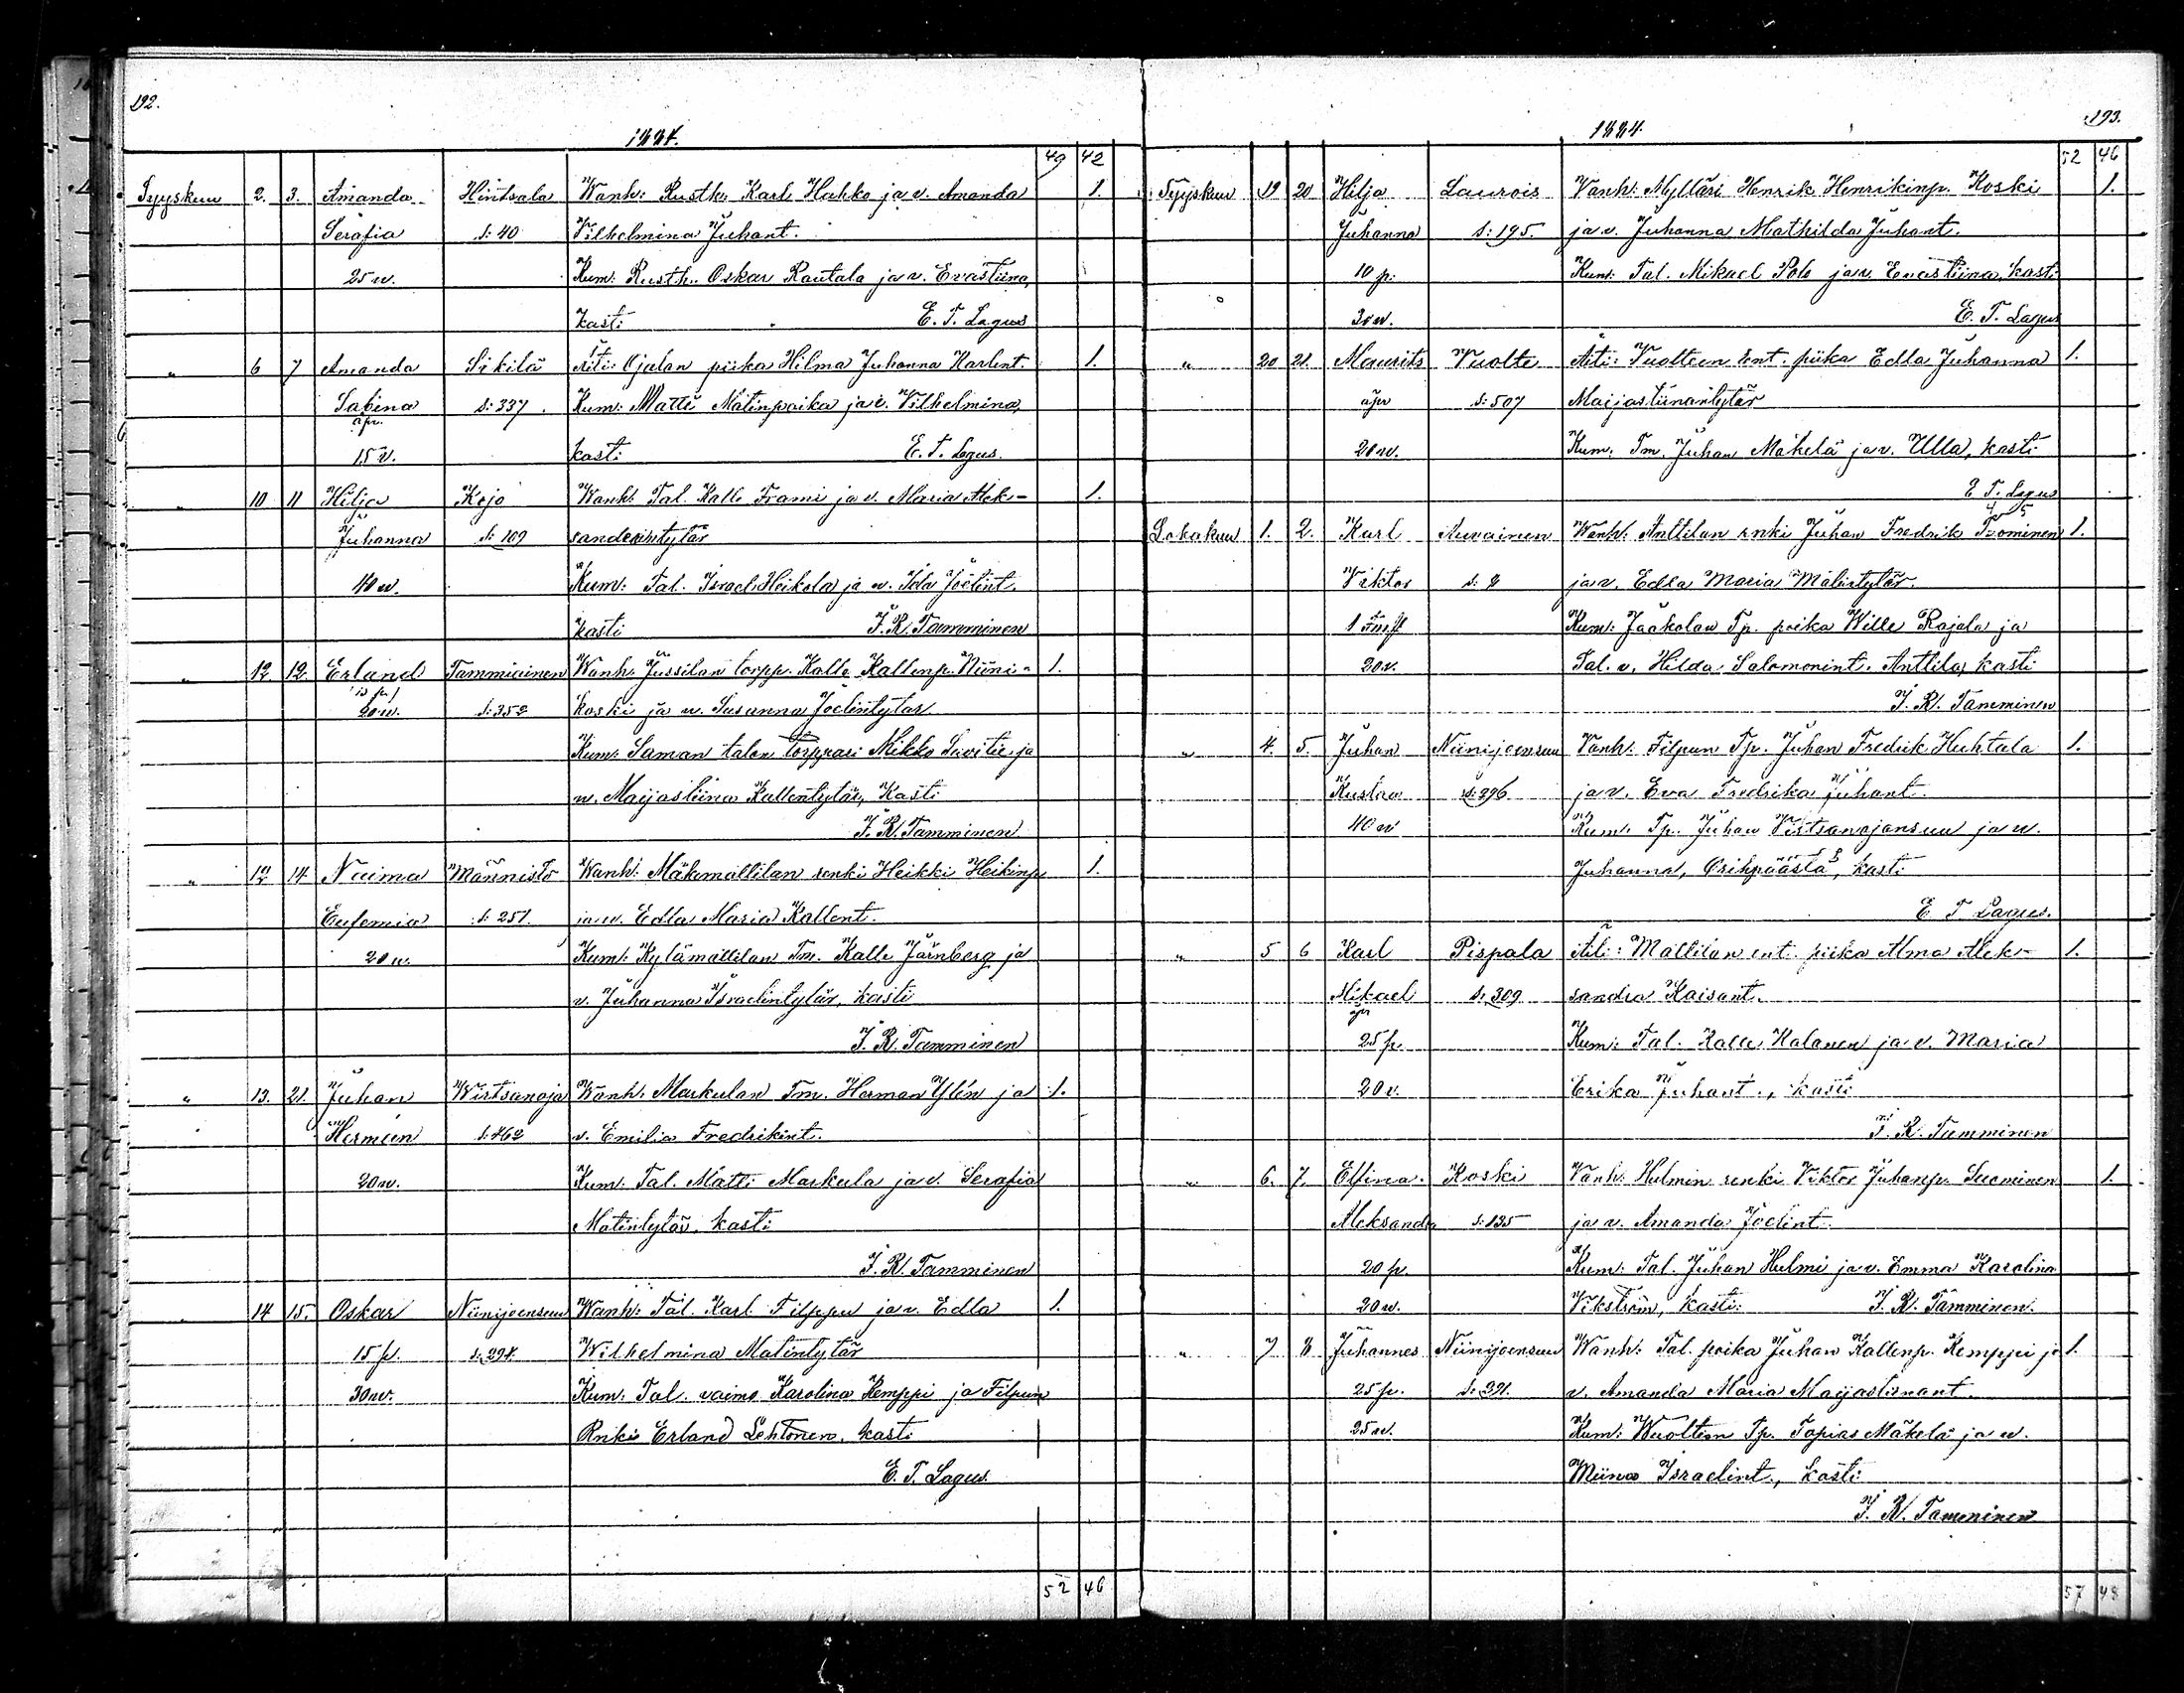 192.
1884.
49 42
Syyskuu 2. 3. Amanda Hintsala Wanh: Rusth. Karl Hahko ja v. Amanda 1.
Serafia s: 40 Vilhelmina Juhant.
25 w. Kum: Rusth. Oskar Rautala ja v. Evastiina,
kasti E. T. Lagus
" 6 7 Amanda Sikilä Äiti: Ojalan piika Hilma Juhanna Karlent. 1.
Sabina s: 337. Kum: Matti Matinpoika ja v. Vilhelmina,
äpr.
15 v. kasti E. T. Lagus.
" 10 11 Hilja Kojo Wanh: Tal. Kalle Frami ja v. Maria Alek- 1.
Juhanna s: 109 santerintytär
40 w. Kum: Tal. Israel Heikola ja w. Ida Joelint.
kasti J. R. Tamminen
" 12 12 Erland Tammiainen Wanh: Jussilan torpp. Kalle Kallenp. Niini- 1.
15 p.
20 w. s: 352 koski ja w. Susanna Joelintytär
Kum: Saman talon torppari Mikko Savitie ja
w. Maijastiina Kallentytär, Kasti
J. R. Tamminen
" 12 14 Naima Männistö Wanh: Mäkimattilan renki Heikki Heikinp. 1.
Eufemia s: 251. ja w. Edla Maria Kallent.
20 w. Kum: Kylämattilan Tm. Kalle Järnberg ja
v. Juhanna Israelintytär, kasti
J. R. Tamminen
" 13. 21. Juhan Wirtsanoja Wanh: Markulan Tm. Herman Ylén ja 1.
Herman s: 462 v. Emilia Fredrikint.
20 w. Kum: Tal. Matti Markula ja v. Serafia
Matintytär, kasti
J. R. Tamminen
" 14 15. Oskar Niinijoensuu Wanh: Tal. Karl Filppu ja v. Edla 1.
15 p. s: 294. Wilhelmina Matintytär
30 w. Kum: Tal. vaimo Karolina Kemppi ja Filpun
Renki Erland Lehtonen, kasti
E. T. Lagus
52 46
193.
1884.
52 46
Syyskuu 19 20 Hilja Laurois Vanh: Mylläri Henrik Henrikinp. Koski 1.
Juhanna s: 195. ja v. Juhanna Mathilda Juhant.
10 p. Kum: Tal. Mikael Polo ja v. Evastiina, kasti
30 w. E. T. Lagus
" 20 21. Maurits Vuolte Äiti: Vuolteen ent. piika Edla Juhanna 1.
äpr s: 507 Maijastiinantytär
20 w. Kum: Tm. Juhan Mäkelä ja v. Ulla, kasti
E. T. Lagus
Lokakuu 1. 2. Karl Auvainen Wanh: Anttilan renki Juhan Fredrik Tuominen 1.
Viktor s: 8 ja v. Edla Maria Matintytär.
Kum: Jaakolan Tp. poika Wille Rajala ja
20 v. Tal. v. Hilda Salomonint. Anttila, kasti
J. R. Tamminen
" 4. 5. Juhan Niinijoensuu Vanh: Filpun Tp. Juhan Fredrik Huhtala 1.
Kustaa s: 296 ja v. Eva Fredrika Juhant.
40 w Kum: Tp. Juhan Virtsanojansuu ja w.
Juhanna, Orihpäästä, kasti
E. T. Lagus.
" 5 6 Karl Pispala Äiti: Mattilan ent. piika Alma Alek- 1.
Mikael s: 309 sandra Kaisant.
äpr
25 p. Kum: Tal. Kalle Halanen ja v. Maria
20 v. Erika Juhant., kasti
J. R. Tamminen
" 6. 7. Elfina Koski Vanh: Hulmin renki Viktor Juhanp. Suominen 1.
Aleksandra s: 135 ja v. Amanda Joelint.
20 p. Kum: Tal. Juhan Hulmi ja v. Emma Karolina
20 w. Vikström, kasti: J. R. Tamminen.
" 7 8 Juhannes Niinijoensuu Wanh: Tal. poika Juhan Kallenp. Kemppi ja 1.
25 p. s: 291. v. Amanda Maria Maijastiinant.
25 w. Kum: Wuolteen Tp. Topias Mäkelä ja w.
Miina Israelint., kasti
J. R. Tamminen
57 48